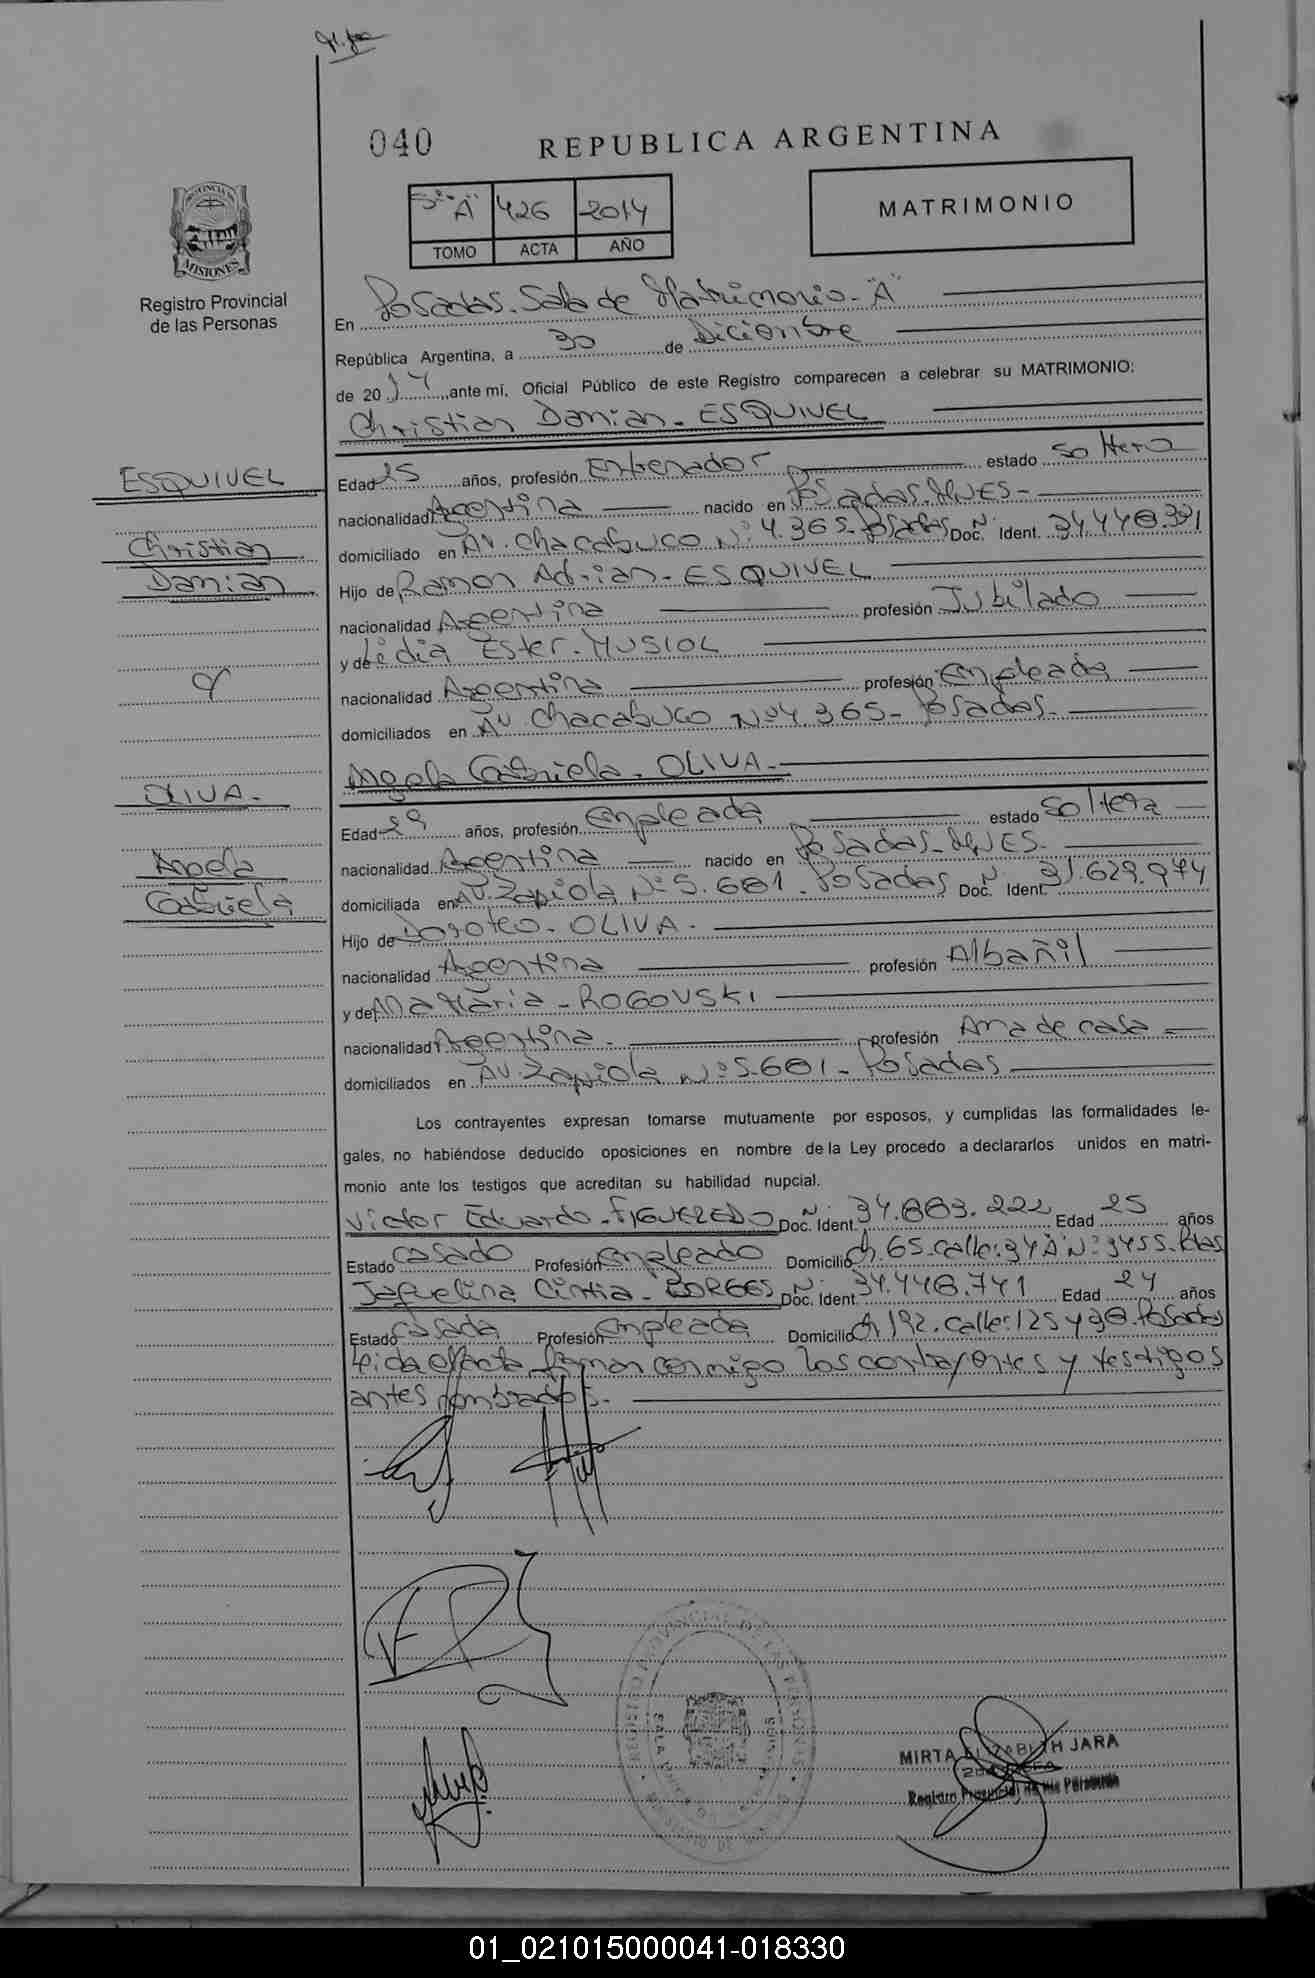 040 REPUBLICA ARGENTINA
MATRIMONIO
"A" 426 2014
TOMO ACTA AÑO
PROVINCIA DE
MISIONES
Registro Provincial
de las Personas
En Posadas. Sala de Matrimonio-"A"
República Argentina, a 30 de Diciembre
de 2014, ante mi, Oficial Público de este Registro comparecen a celebrar su MATRIMONIO:
Christian Damian- ESQUIVEL
ESQUIVEL
Christian
Damian
y
OLIVA-
Angela
Gabriela
Edad 25 años, profesión Entrenador estado Soltero
nacionalidad Argentina nacido en Posadas.MNES-
domiciliado en Av. Chacabuco Nº 4.365-Posadas Doc. Nº Ident. 34.448.
Hijo de Ramon Adrian- ESQUIVEL
nacionalidad Argentina profesión Jubilado
y de Lidia Ester- MUSIOL
nacionalidad Argentina profesión Empleada
domiciliados en Av Chacabuco Nº 4.365- Posadas.
Angela Gabriela- OLIVA-
Edad 29 años, profesión Empleada estado Soltera
nacionalidad Argentina nacido en Posadas-MNES-
domiciliada en Av. Zapiola Nº 5.681. Posadas Doc. Nº Ident. 31.629.974
Hijo de Doroteo- OLIVA-
nacionalidad Argentina profesión Albañil
y de Ana Maria- ROGOVSKI
nacionalidad Argentina- profesión Ama de casa
domiciliados en Av. Zapiola Nº 5.681- Posadas
Los contrayentes expresan tomarse mutuamente por esposos, y cumplidas las formalidades le-
gales, no habiéndose deducido oposiciones en nombre de la Ley procedo a declararlos unidos en matri-
monio ante los testigos que acreditan su habilidad nupcial.
Victor Eduardo-FIGUEREDO Doc. Nº Ident. 34.883.222 Edad 25 años
Estado Casado Profesión Empleado Domicilio Ch.65-calle:34"A"Nº:3455.Pdas
Jaquelina Cintia- BORGES Doc. Nº Ident. 34.448.741 Edad 24 años
Estado Casada Profesión Empleada Domicilio Ch 192.calle:125 y 38.Posadas
Leida el Acta firman conmigo los contrayentes y testigos
antes nombrados.
REGISTRO PROVINCIAL DE LAS PERSONAS
SALA
MIRTA ELIZABETH JARA
Registro Provincial de las Personas
01_021015000041-018330